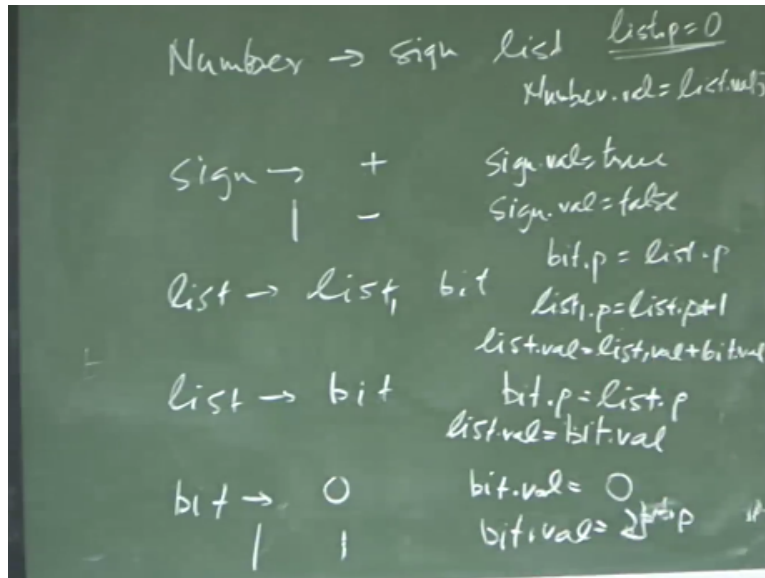 Number → sign list list.p=0
Number.val=list.val;
sign → + sign.val=true
| - sign.val=false
bit.p = list.p
list → list₁ bit list₁.p=list.p+1
list.val=list₁val+bit.val
list → bit bit.p=list.p
list.val=bit.val
bit → 0 bit.val= 0
| 1 bit.val= 2^bit.p